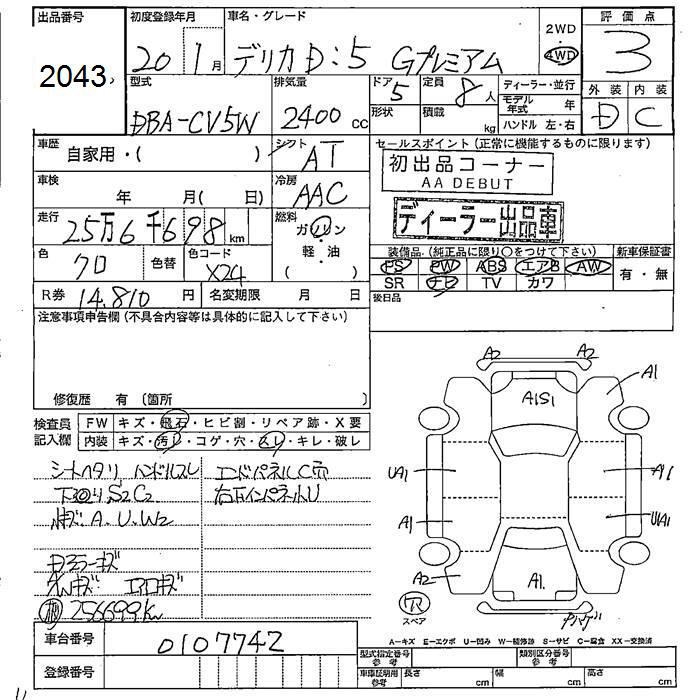 出品番号
2043
初度登録年月
20 1月
車名・グレード
デリカD:5 Gプレミアム
2WD
4WD
評価点
3
型式
DBA-CV5W
排気量
2400 cc
ドア 5
形状
定員 8人
積載 kg
ディーラー・並行
モデル年式 年
ハンドル 左・右
外装 内装
D C
車歴
自家用・( )
シフト
AT
車検
年 月( 日)
冷房
AAC
走行
25万6千698km
燃料
ガソリン
軽・油
( )
色
クロ
色替
色コード
X24
R券 14.810 円
名変期限 月 日
セールスポイント(正常に機能するものに限ります)
初出品コーナー
AA DEBUT
ディーラー出品車
装備品(純正品に限り○をつけて下さい)
PS PW ABS エアB AW
SR ナビ TV カワ
新車保証書
有・無
後日品
注意事項申告欄(不具合内容等は具体的に記入して下さい)
修復歴 有 (箇所 )
検査員記入欄
FW キズ・飛石・ヒビ割・リペア跡・X要
内装 キズ・汚レ・コゲ・穴・スレ・キレ・破レ
シートヘタリ ハンドルスレ
下回り S2C2
エンドパネルC穴
右下インパネルU
A.U.W2
ドアミラーキズ
エアロキズ
256699km
A2 A2
A1
A1S1
UA1
A1
A1
U1A1
A2
A1
スペア
車台番号
0107742
登録番号
A-キズ E-エクボ U-凹み W-補修跡 S-サビ C-腐食 XX-交換済
型式指定番号
参考
類別区分番号
参考
車庫証明用
参考
長さ cm
幅 cm
高さ cm